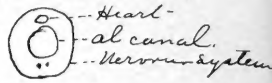 Heart-
al canal.
Nervous System